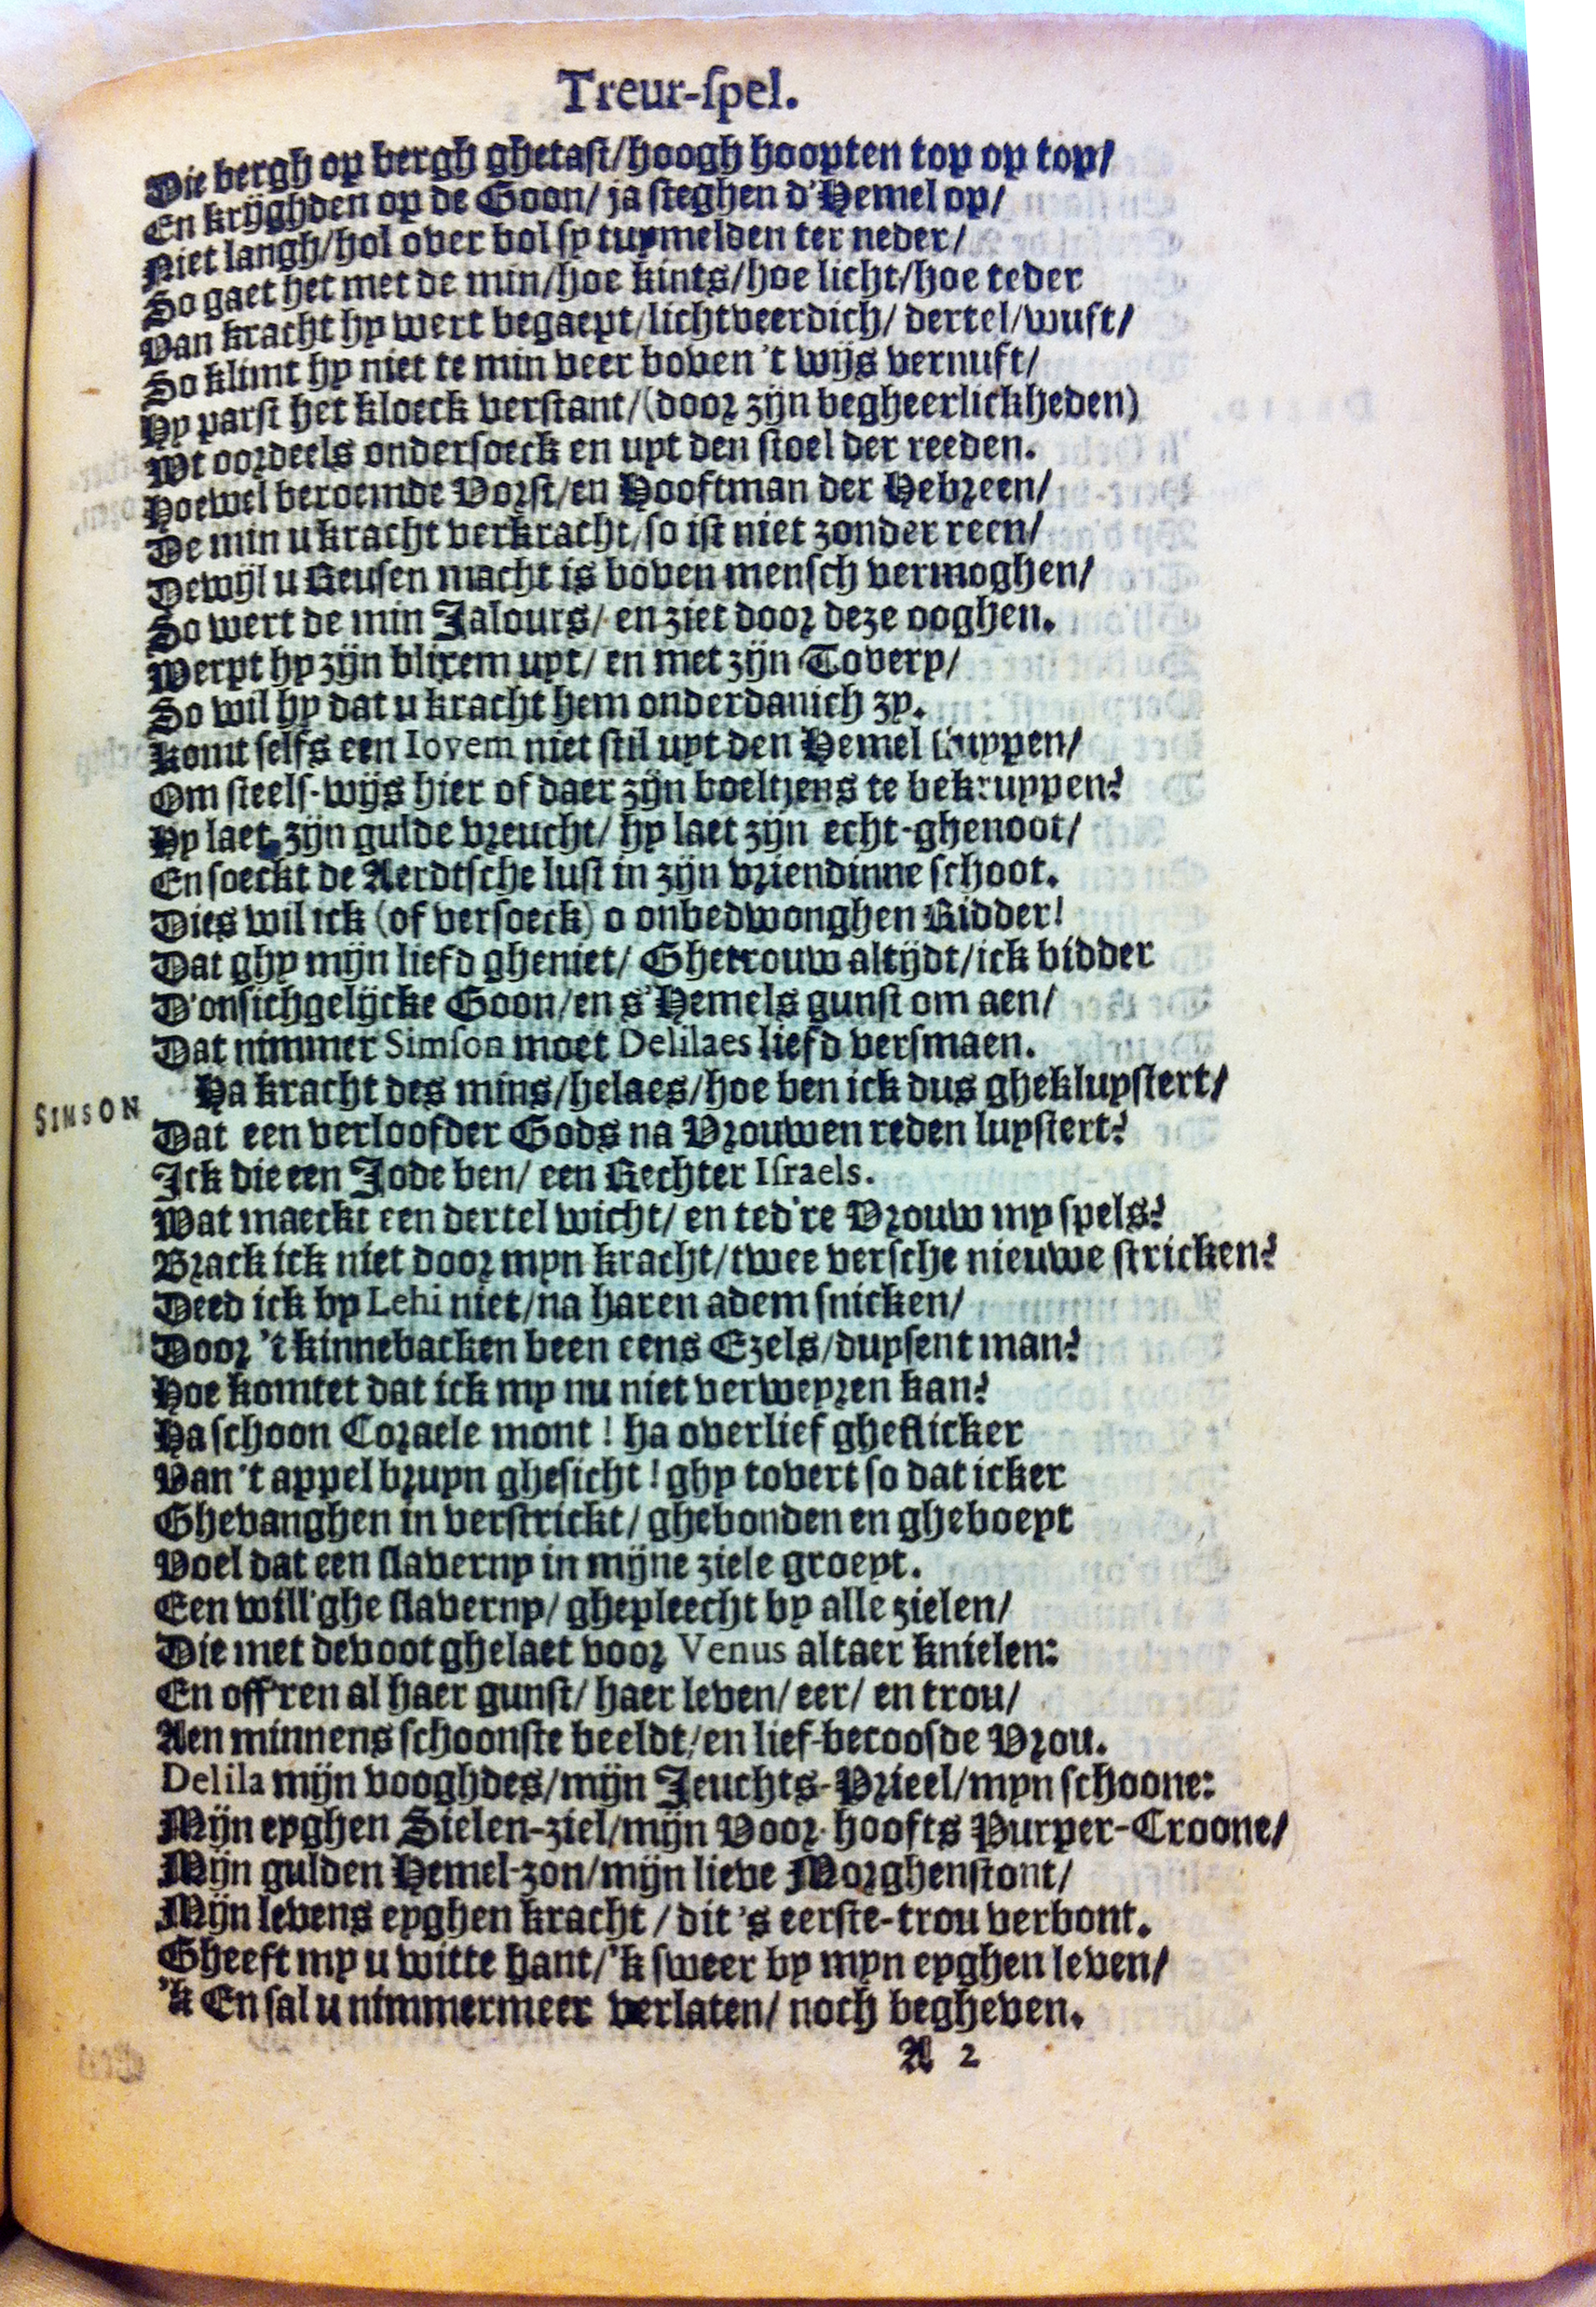 Treur-ſpel.
Die bergh op bergh ghetaſt/hoogh hoopten top op top/
En krijghden op de Goon/ ja ſteghen d'Hemel op/
Niet langh/hol over bol ſy tuymelden ter neder/
So gaet het met de min/hoe kints/hoe licht/hoe teder
Van kracht hy wert begaept/lichtveerdich/ dertel/wuft/
So klimt hy niet te min veer boven 't wijs vernuft/
Hy parſt het kloeck verſtant/(door zijn begheerlickheden)
Wt oordeels onderſoeck en uyt den ſtoel der reeden.
Hoewel beroemde Vorſt/en Hooftman der Hebreen/
De min u kracht verkracht/ſo iſt niet zonder reen/
Dewijl u Reuſen macht is boven menſch vermoghen/
So wert de min Jalours/ en ziet door deze ooghen.
Werpt hy zijn blixem uyt/ en met zijn Tovery/
So wil hy dat u kracht hem onderdanich zy.
Komt ſelfs een Iovem niet ſtil uyt den Hemel ſluypen/
Om ſteelſ-wijs hier of daer zijn boeltjens te bekruypen?
Hy laet zijn gulde vreucht/ hy laet zijn echt-ghenoot/
En ſoeckt de Aerdtſche luſt in zijn vriendinne ſchoot.
Dies wil ick (of verſoeck) o onbedwonghen Ridder!
Dat ghy mijn liefd gheniet/ Ghetrouw altijdt/ick bidder
D'onſichgelijcke Goon/en s'Hemels gunſt om aen/
Dat nimmer Simſon moet Delilaes liefd verſmaen.
SIMSON Ha kracht des mins/helaes/hoe ben ick dus ghekluyſtert/
Dat een verloofder Gods na Vrouwen reden luyſtert?
Ick die een Jode ben/ een Rechter Iſraels.
Wat maeckt een dertel wicht/ en ted're Vrouw my ſpels?
Brack ick niet door myn kracht/twee verſche nieuwe ſtricken?
Deed ick by Lehi niet/na haren adem ſnicken/
Door 't kinnebacken been eens Ezels/duyſent man?
Hoe komtet dat ick my nu niet verweyren kan?
Ha ſchoon Coraele mont ! ha overlief gheflicker
Van 't appel bruyn gheſicht ! ghy tovert ſo dat icker
Ghevanghen in verſtrickt/ ghebonden en gheboeyt
Voel dat een ſlaverny in mijne ziele groeyt.
Een will'ghe ſlaverny/ ghepleecht by alle zielen/
Die met devoot ghelaet voor Venus altaer knielen:
En off'ren al haer gunſt/ haer leven/ eer/ en trou/
Aen minnens ſchoonſte beeldt/en lief-berooſde Vrou.
Delila mijn vooghdes/mijn Jeuchts-Prieel/myn ſchoone:
Mijn eyghen Sielen-ziel/mijn Voor-hoofts Purper-Croone/
Mijn gulden Hemel-zon/mijn lieve Morghenſtont/
Mijn levens eyghen kracht / dit 's eerſte-trou verbont.
Gheeft my u witte hant/'k ſweer by myn eyghen leven/
'k En ſal u nimmermeer verlaten/ noch begheven.
A 2